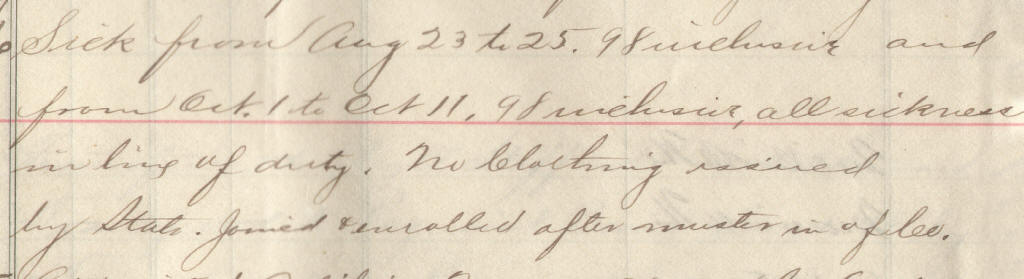 Sick from Aug 23 to 25. 98 inclusive and
from Oct. 1 to Oct 11, 98 inclusive, all sickness
in line of duty. No Clothing issued
by State. Joined & enrolled after muster in of Co.